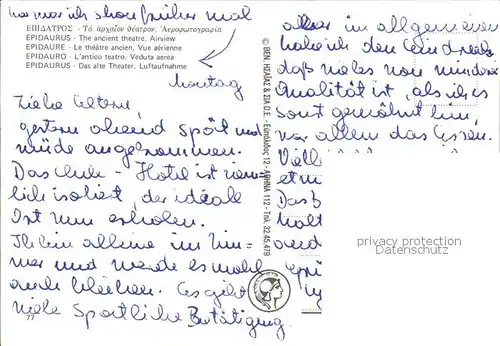 war ich schon früher mal
ΕΠΙΔΑΥΡΟΣ - Τό ἀρχαῖον θέατρον. Ἀεροφωτογραφία
EPIDAURUS - The ancient theatre. Airview
EPIDAURE - Le théâtre ancien. Vue aérienne
EPIDAURO - L'antico teatro. Veduta aerea
EPIDAURUS - Das alte Theater. Luftaufnahme
Montag
Liebe Eltern,
gestern abend spät und
müde angekommen.
Das Club-Hotel ist ziem-
lich isoliert, der ideale
Ort zum erholen.
Ich bin alleine im Zim-
mer und werde es wohl
auch bleiben. Es gibt
viele Sportliche Betätigung.
77
© BEN. ΗΣΑΪΑΣ & ΣΙΑ Ο.Ε. - Εὐπόλιδος 12 - ΑΘΗΝΑ 112 - Τηλ. 32.45.479
aber im allgemeinen
habe ich den Eindruck
daß vieles von minderer
Qualität ist, als ich es
sonst gewöhnt bin,
vor allem das Essen.
Viell
etw
Das
halt
und
privacy protection
Datenschutz